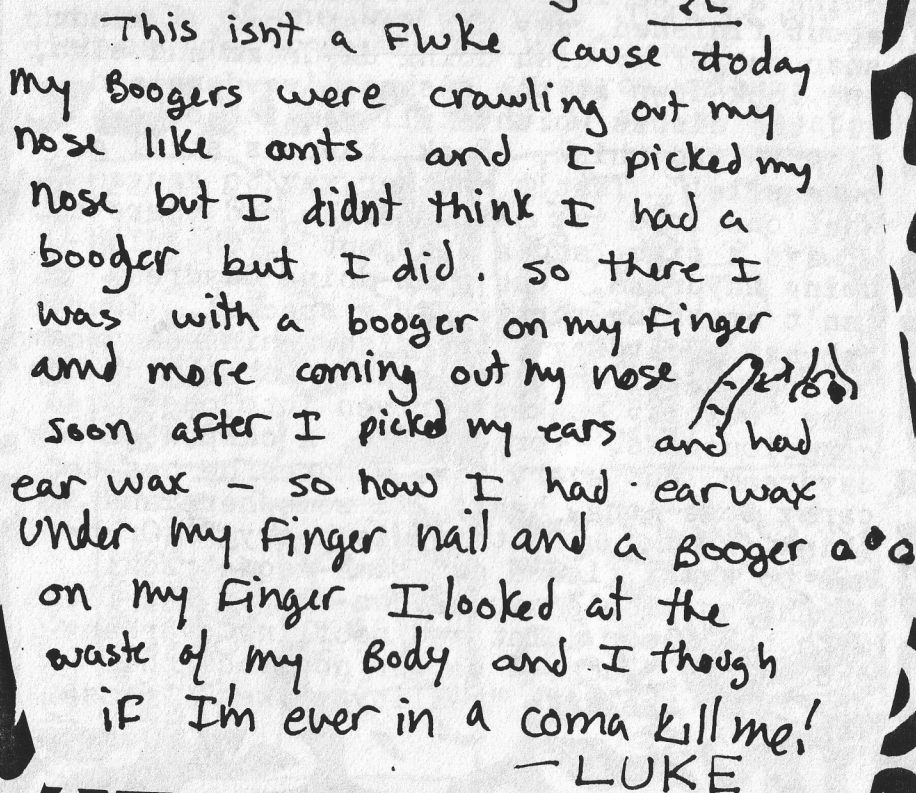 This isnt a Fluke cause today
my Boogers were crawling out my
nose like ants and I picked my
nose but I didnt think I had a
booger but I did. so there I
was with a booger on my Finger
and more coming out my nose
soon after I picked my ears and had
ear wax - so now I had earwax
under my Finger nail and a Booger
on my Finger I looked at the
waste of my Body and I though
iF I'm ever in a coma kill me!
- LUKE